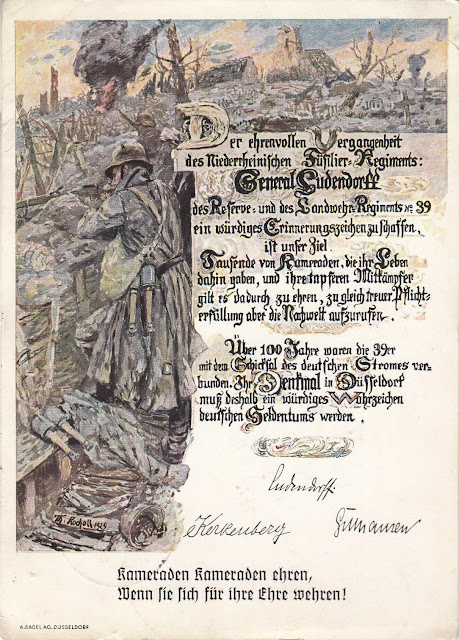 Der ehrenvollen Vergangenheit
des Niederrheinischen Füsilier-Regiments:
General Ludendorff
des Reserve- und des Landwehr-Regiments Nr. 39
ein würdiges Erinnerungszeichen zu schaffen,
ist unser Ziel.
Tausende von Kameraden, die ihr Leben
dahin gaben, und ihre tapferen Mitkämpfer
gilt es dadurch zu ehren, zugleich treuer Pflicht-
erfüllung aber die Nachwelt aufzurufen.
Über 100 Jahre waren die 39er
mit dem Schicksal des deutschen Stromes ver-
bunden. Ihr Denkmal in Düsseldorf
muß deshalb ein würdiges Wahrzeichen
deutschen Heldentums werden.
Ludendorff.
Kerkenberg
Th. Rocholl 1929
Kameraden Kameraden ehren,
Wenn sie sich für ihre Ehre wehren!
A. BAGEL AG. DÜSSELDORF